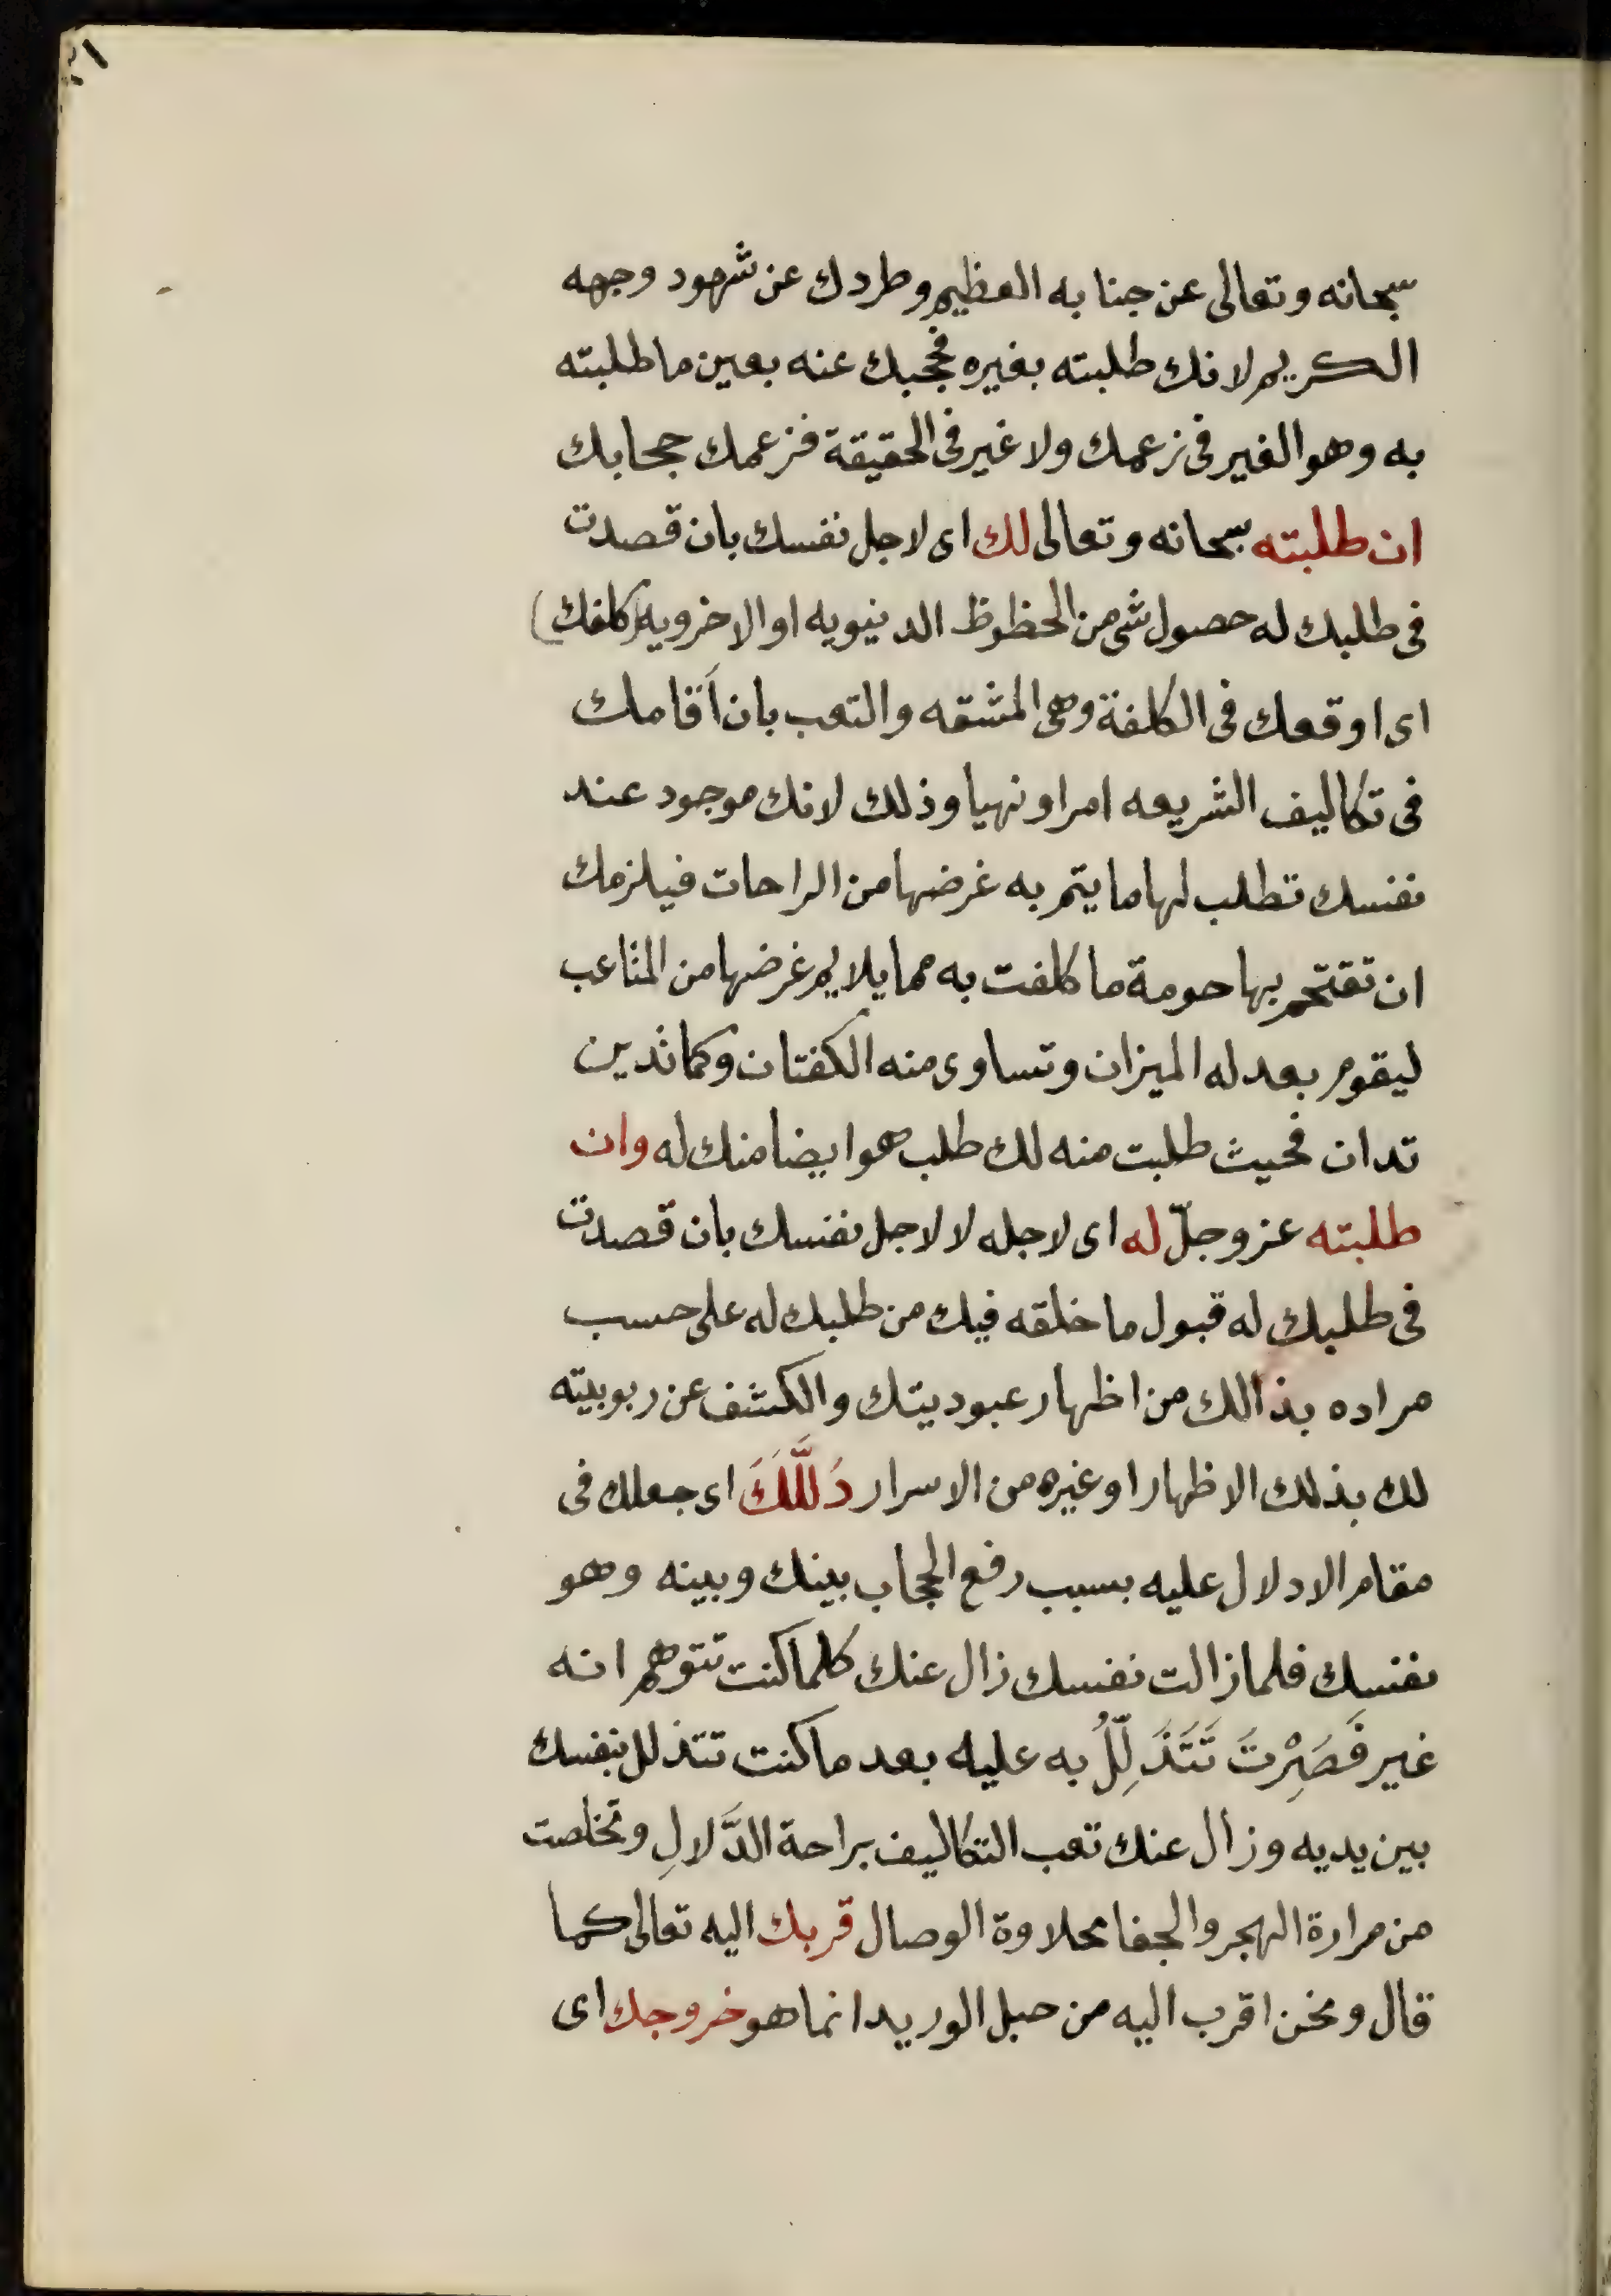 ٢١
سبحانه وتعالى عن جنابه العظيم وطردك عن شهود وجهه
الكريم لانك طلبته بغيره فحجبك عنه بعين ما طلبته
به وهو الغير فى زعمك ولا غير فى الحقيقة فزعمك حجابك
ان طلبته سبحانه وتعالى لك اى لاجل نفسك بان قصدت
فى طلبك له حصول شى من الحظوظ الدنيويه او الاخرويه (كلفك)
اى اوقعك فى الكلفة وهى المشقه والتعب بان أقامك
فى تكاليف الشريعه امرا ونهيا وذلك لانك موجود عند
نفسك تطلب لها ما يتم به غرضها من الراحات فيلزمك
ان تقتحم بها حومة ما كلفت به مما يلايم غرضها من المتاعب
ليقوم بعدله الميزان وتساوى منه الكفتان وكما تدين
تدان فحيث طلبت منه لك طلب هو ايضا منك له وان
طلبته عز وجلّ له اى لاجله لا لاجل نفسك بان قصدت
فى طلبك له قبول ما خلقه فيك من طلبك له على حسب
مراده بذالك من اظهار عبوديتك والكشف عن ربوبيته
لك بذلك الاظهار او غيره من الاسرار دَلَّلَكَ اى جعلك فى
مقام الادلال عليه بسبب رفع الحجاب بينك وبينه وهو
نفسك فلما زالت نفسك زال عنك كلما كنت تتوهم انه
غير فَصِرْتَ تَتَذَلَّلُ به عليه بعد ما كنت تتذلل بنفسك
بين يديه وزال عنك تعب التكاليف براحة الدَّلالِ وتخلصت
من مرارة الهجر والجفا بحلاوة الوصال قربك اليه تعالى كما
قال ونحن اقرب اليه من حبل الوريد انما هو خروجك اى